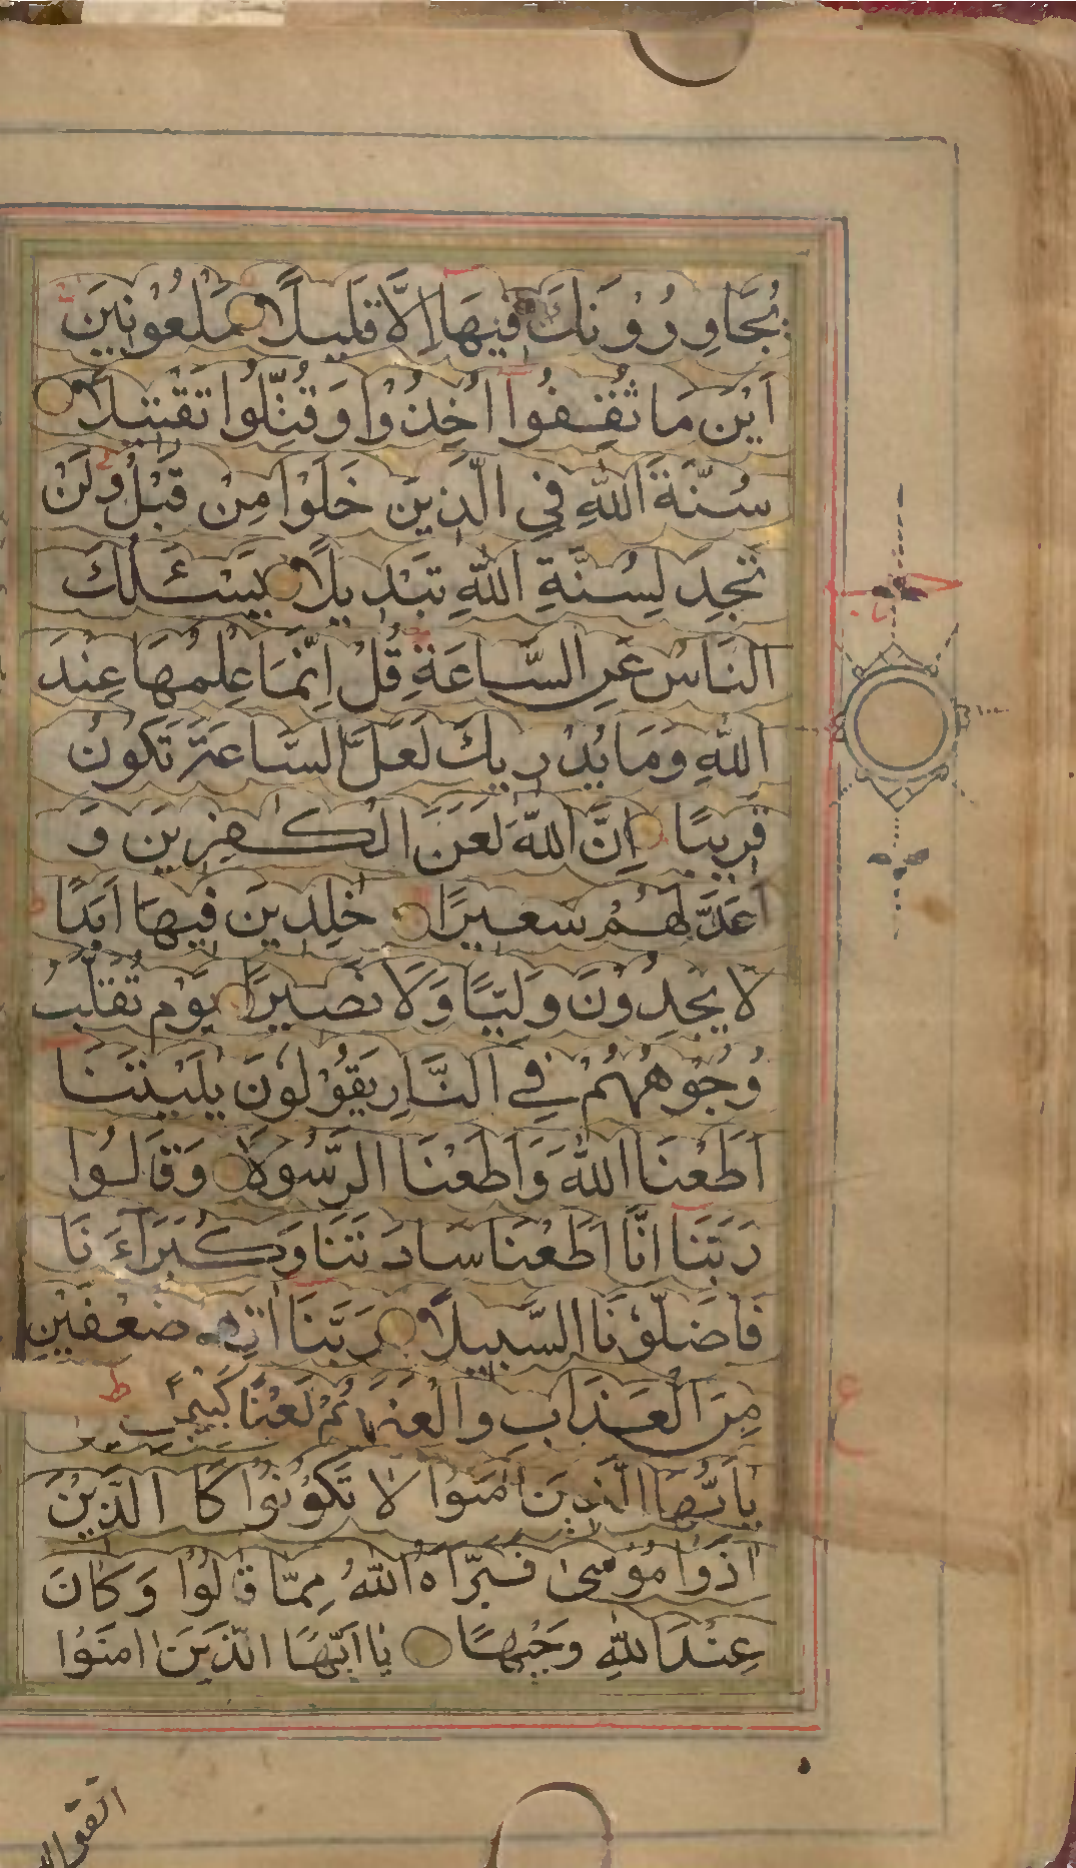 يُجَاوِرُوْنَكَ فِيْهَا اِلَّا قَلِيلًا مَلْعُونِيْنَ
اَيْنَ مَا ثُقِفُوا اُخِذُوْا وَقُتِّلُوا تَقْتِيْلًا
سُنَّةَ اللّٰهِ فِي الَّذِيْنَ خَلَوْا مِنْ قَبْلُ وَلَنْ
تَجِدَ لِسُنَّةِ اللّٰهِ تَبْدِيْلًا يَسْئَلُكَ
النَّاسُ عَنِ السَّاعَةِ قُلْ اِنَّمَا عِلْمُهَا عِنْدَ
اللّٰهِ وَمَا يُدْرِيْكَ لَعَلَّ السَّاعَةَ تَكُوْنُ
قَرِيبًا اِنَّ اللّٰهَ لَعَنَ الْكٰفِرِيْنَ وَ
اَعَدَّ لَهُمْ سَعِيْرًا خٰلِدِيْنَ فِيْهَا اَبَدًا
لَا يَجِدُوْنَ وَلِيًّا وَلَا نَصِيْرًا يَوْمَ تُقَلَّبُ
وُجُوْهُهُمْ فِي النَّارِ يَقُوْلُوْنَ يٰلَيْتَنَا
اَطَعْنَا اللّٰهَ وَاَطَعْنَا الرَّسُوْلَا وَقَالُوا
رَبَّنَا اِنَّا اَطَعْنَا سَادَتَنَا وَكُبَرَآءَنَا
فَاَضَلُّوْنَا السَّبِيْلَا رَبَّنَا اٰتِهِمْ ضِعْفَيْنِ
مِنَ الْعَذَابِ وَالْعَنْهُمْ لَعْنًا كَبِيْرًا
يٰاَيُّهَا الَّذِيْنَ اٰمَنُوْا لَا تَكُوْنُوْا كَا الَّذِيْنَ
اٰذَوْا مُوْسٰى فَبَرَّاَهُ اللّٰهُ مِمَّا قَالُوْا وَكَانَ
عِنْدَ اللّٰهِ وَجِيْهًا يَا اَيُّهَا الَّذِيْنَ اٰمَنُوْا
اتقوا الله